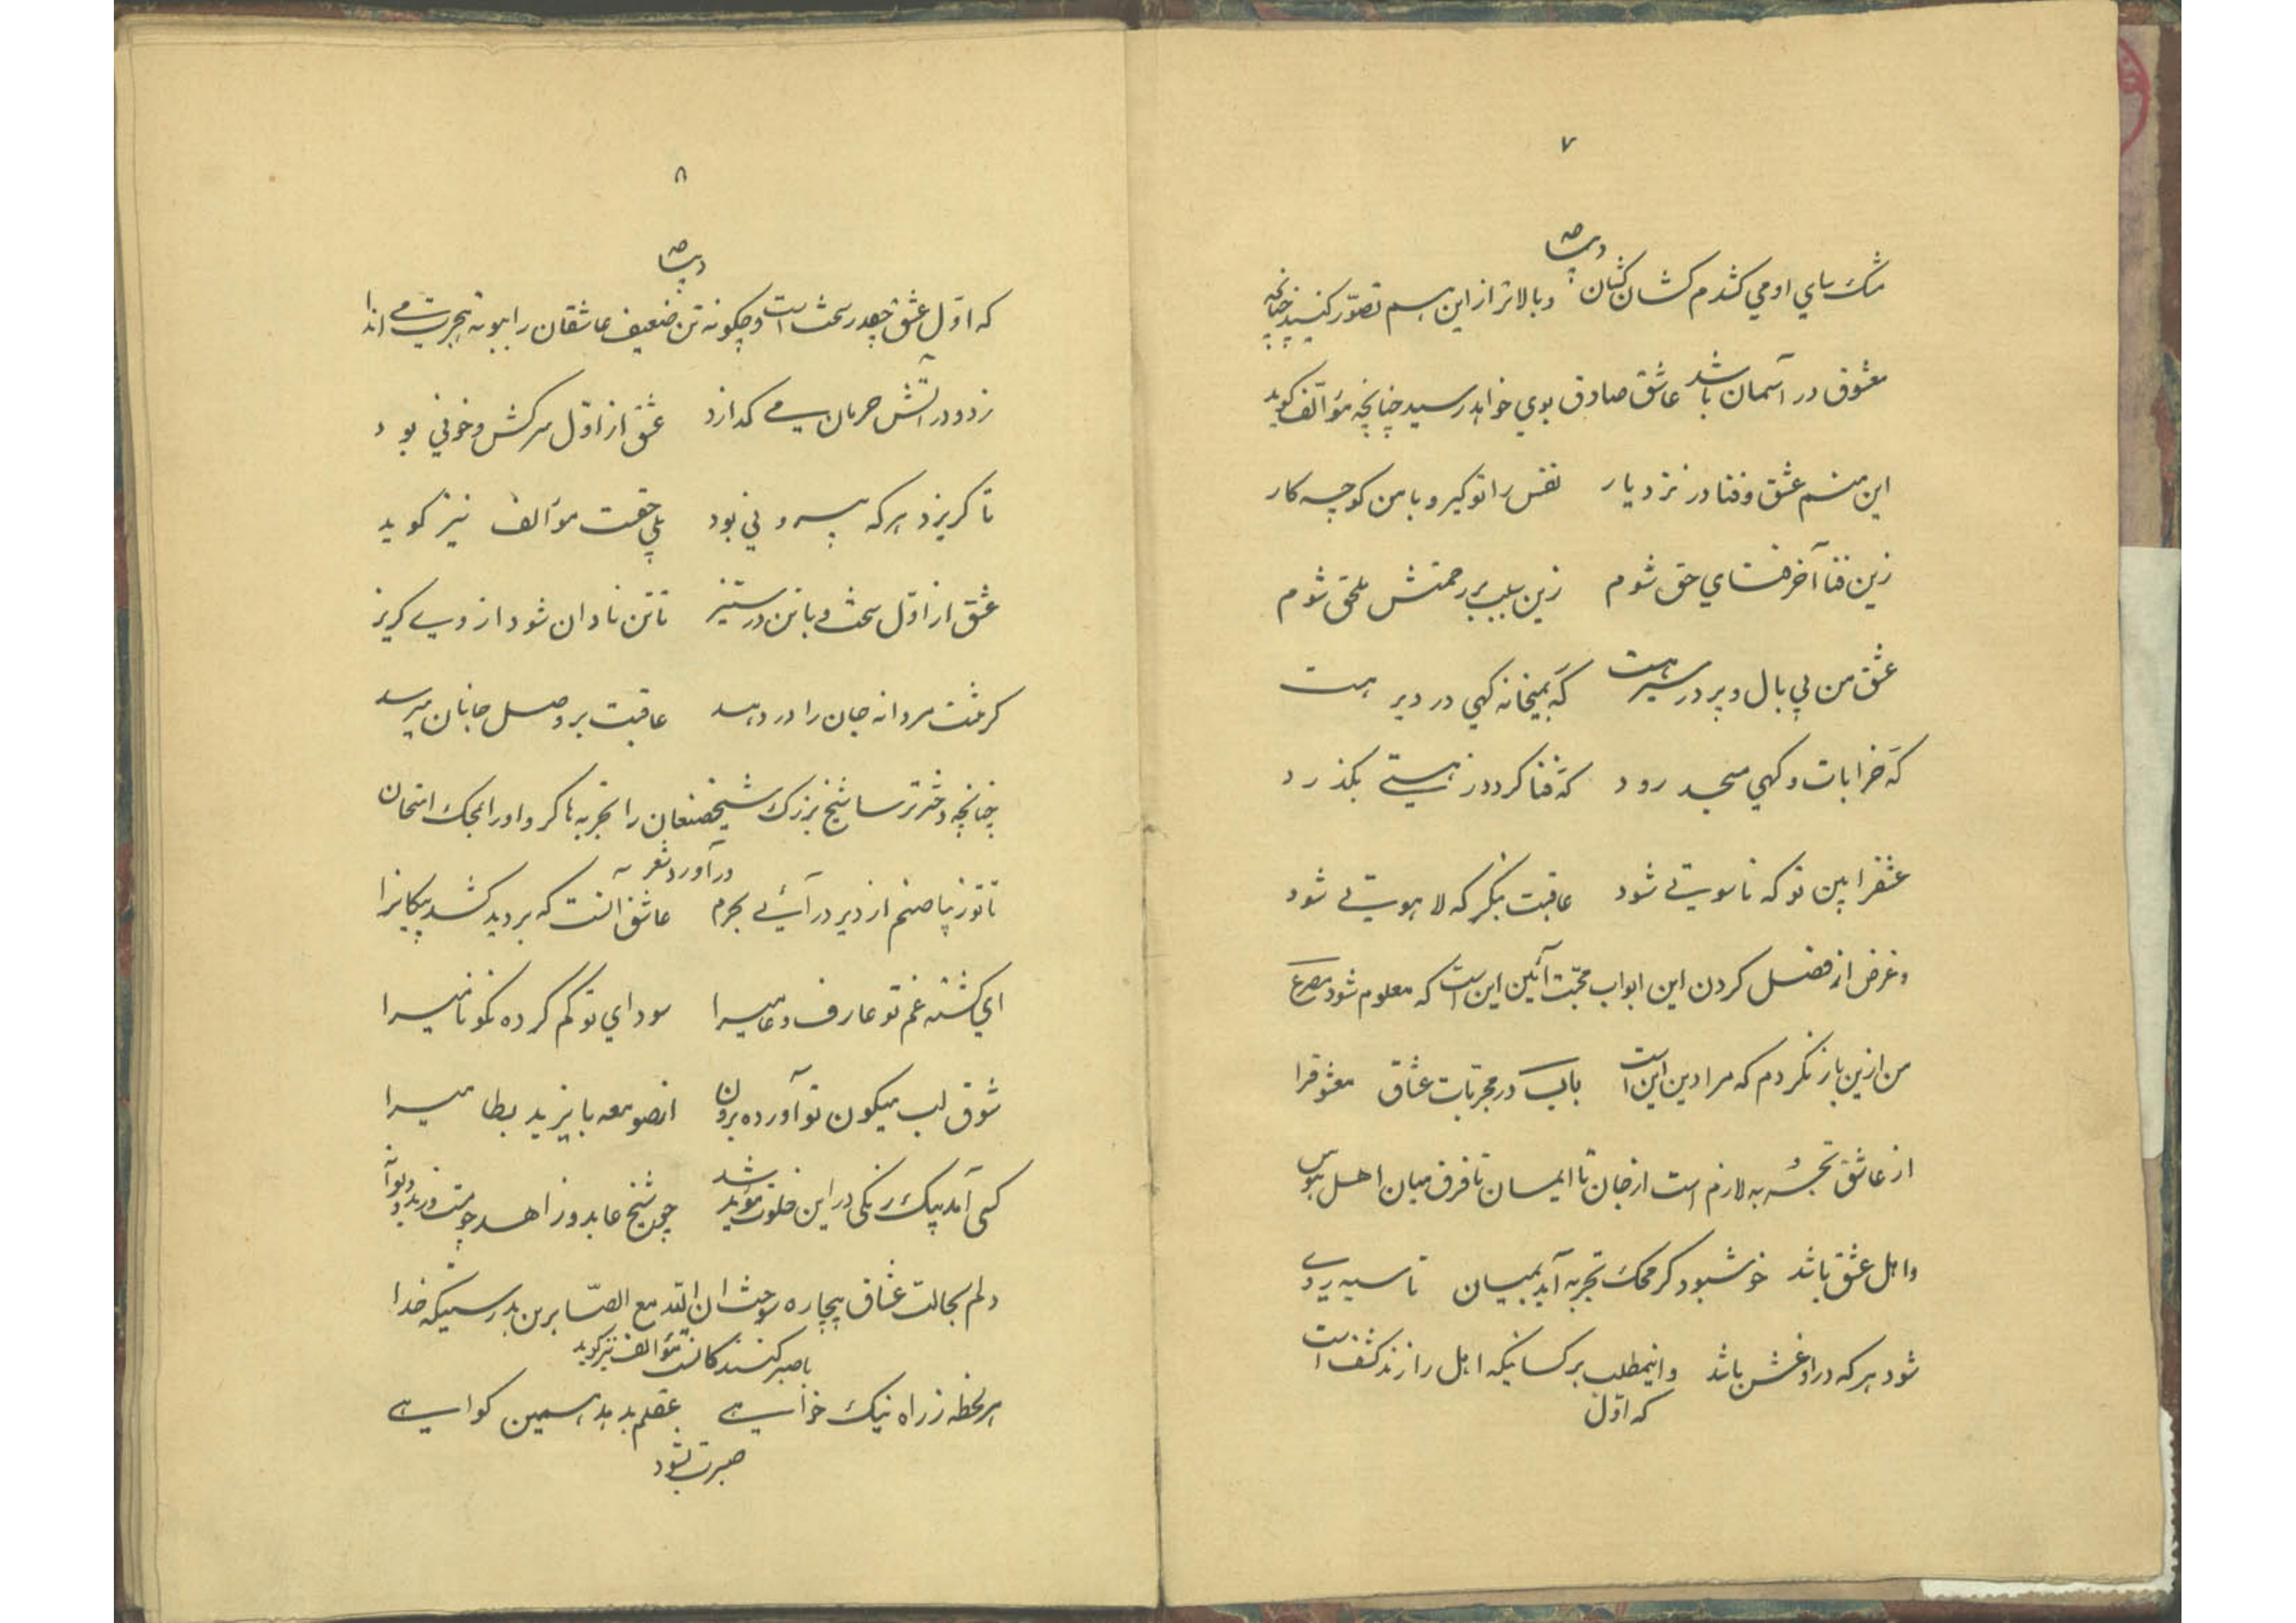 ۷
دیباچه
مشک سای او می کشدم کشان کشان وبالاتر از این هم تصوّر کنید چنانچه
معشوق در آسمان باشد عاشق صادق بوی خواهد رسید چنانچه مؤالّف گوید
این منم عشق و فنا در نزد یار نفس را تو گیر و با من کو چه کار
زین فنا آخر فنای حق شوم زین سبب بر رحمتش ملحق شوم
عشق من بی بال و پر در سیر هست که بمیخانه کهی در دیر هست
که خرابات و کهی مسجد رود که فنا کردد ز هستی بگذرد
عشقرا بین تو که ناسوتی شود عاقبت بنگر که لاهوتی شود
وغرض از فضل کردن این ابواب محبّت آئین این است که معلوم شود مصرع
من ازین باز نکردم که مرا دین این است باب در مجربّات عشاق معشوقرا
از عاشق تجربه لازم است از جان تا ایمان تا فرق میان اهل هوس
واهل عشق باشد خوش بود کر محک تجربه آید بمیان تا سیه روی
شود هر که در او غش باشد واینمطلب بر کسانیکه اهل رازند کشف است
که اوّل
۸
دیباچه
که اوّل عشق چقدر سخت است و چکونه تن ضعیف عاشقان را ببوته تجربت می اندا
زد و در آتش حرمان می کدازد عشق از اوّل سرکش و خونی بود
تا کریزد هر که بیرونی بود بلی حقست مؤالف نیز کوید
عشق از اوّل سخت و با تن در ستیز تا تن نادان شود از وی کریز
کر نشت مردانه جان را در دهد عاقبت بر وصل جانان میرسد
چنانچه دختر ترسا شیخ بزرک شیخصنعان را تجربه ها کرد و او را بمحک امتحان
در آورد شعر
تا تو ز پا صنم از دیر در آئی بحرم عاشق آنست که بر دیده کشد پیکانرا
ای کشته غم تو عارف و عامیرا سودای تو کم کرده نکونامیرا
شوق لب میکون تو آورده برون از صومعه بایزید بسطامیرا
کی آمد پیک رنکی در این خلوت مؤید شد چون شیخ عابد و زاهد
دلم بحالت عشاق بیچاره سوخت ان الله مع الصّابرین بدرستیکه خدا
با صبر کنندکانست مؤالف نیز کوید
هر لحظه ز راه نیک خواهی عقلم بدهد همین کواهی
صبرت بشود